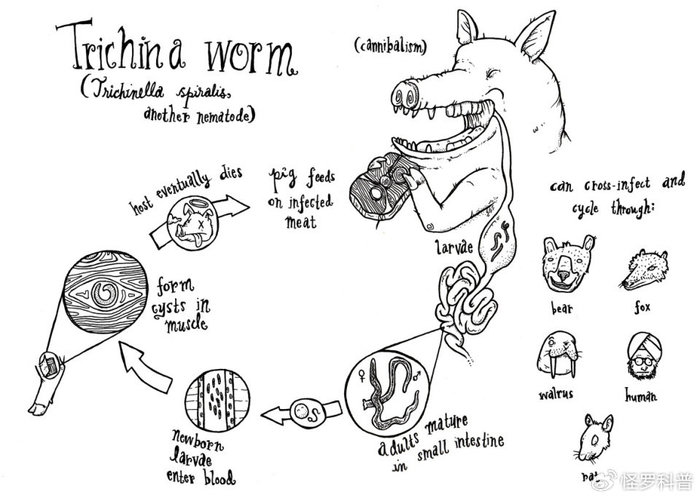 Trichina worm
(Trichinella spiralis,
another nematode)
(cannibalism)
host eventually dies
pig feeds
on infected
meat
larvae
can cross-infect and
cycle through:
bear
fox
walrus
human
rat
form
cysts in
muscle
newborn
larvae
enter blood
♀
♂
adults mature
in small intestine
@怪罗科普